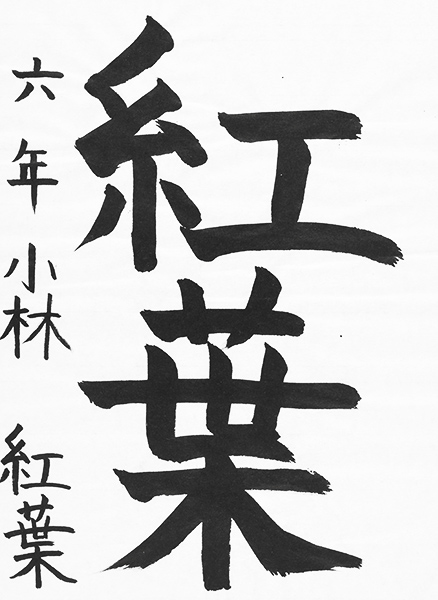 紅葉
六年 小林 紅葉